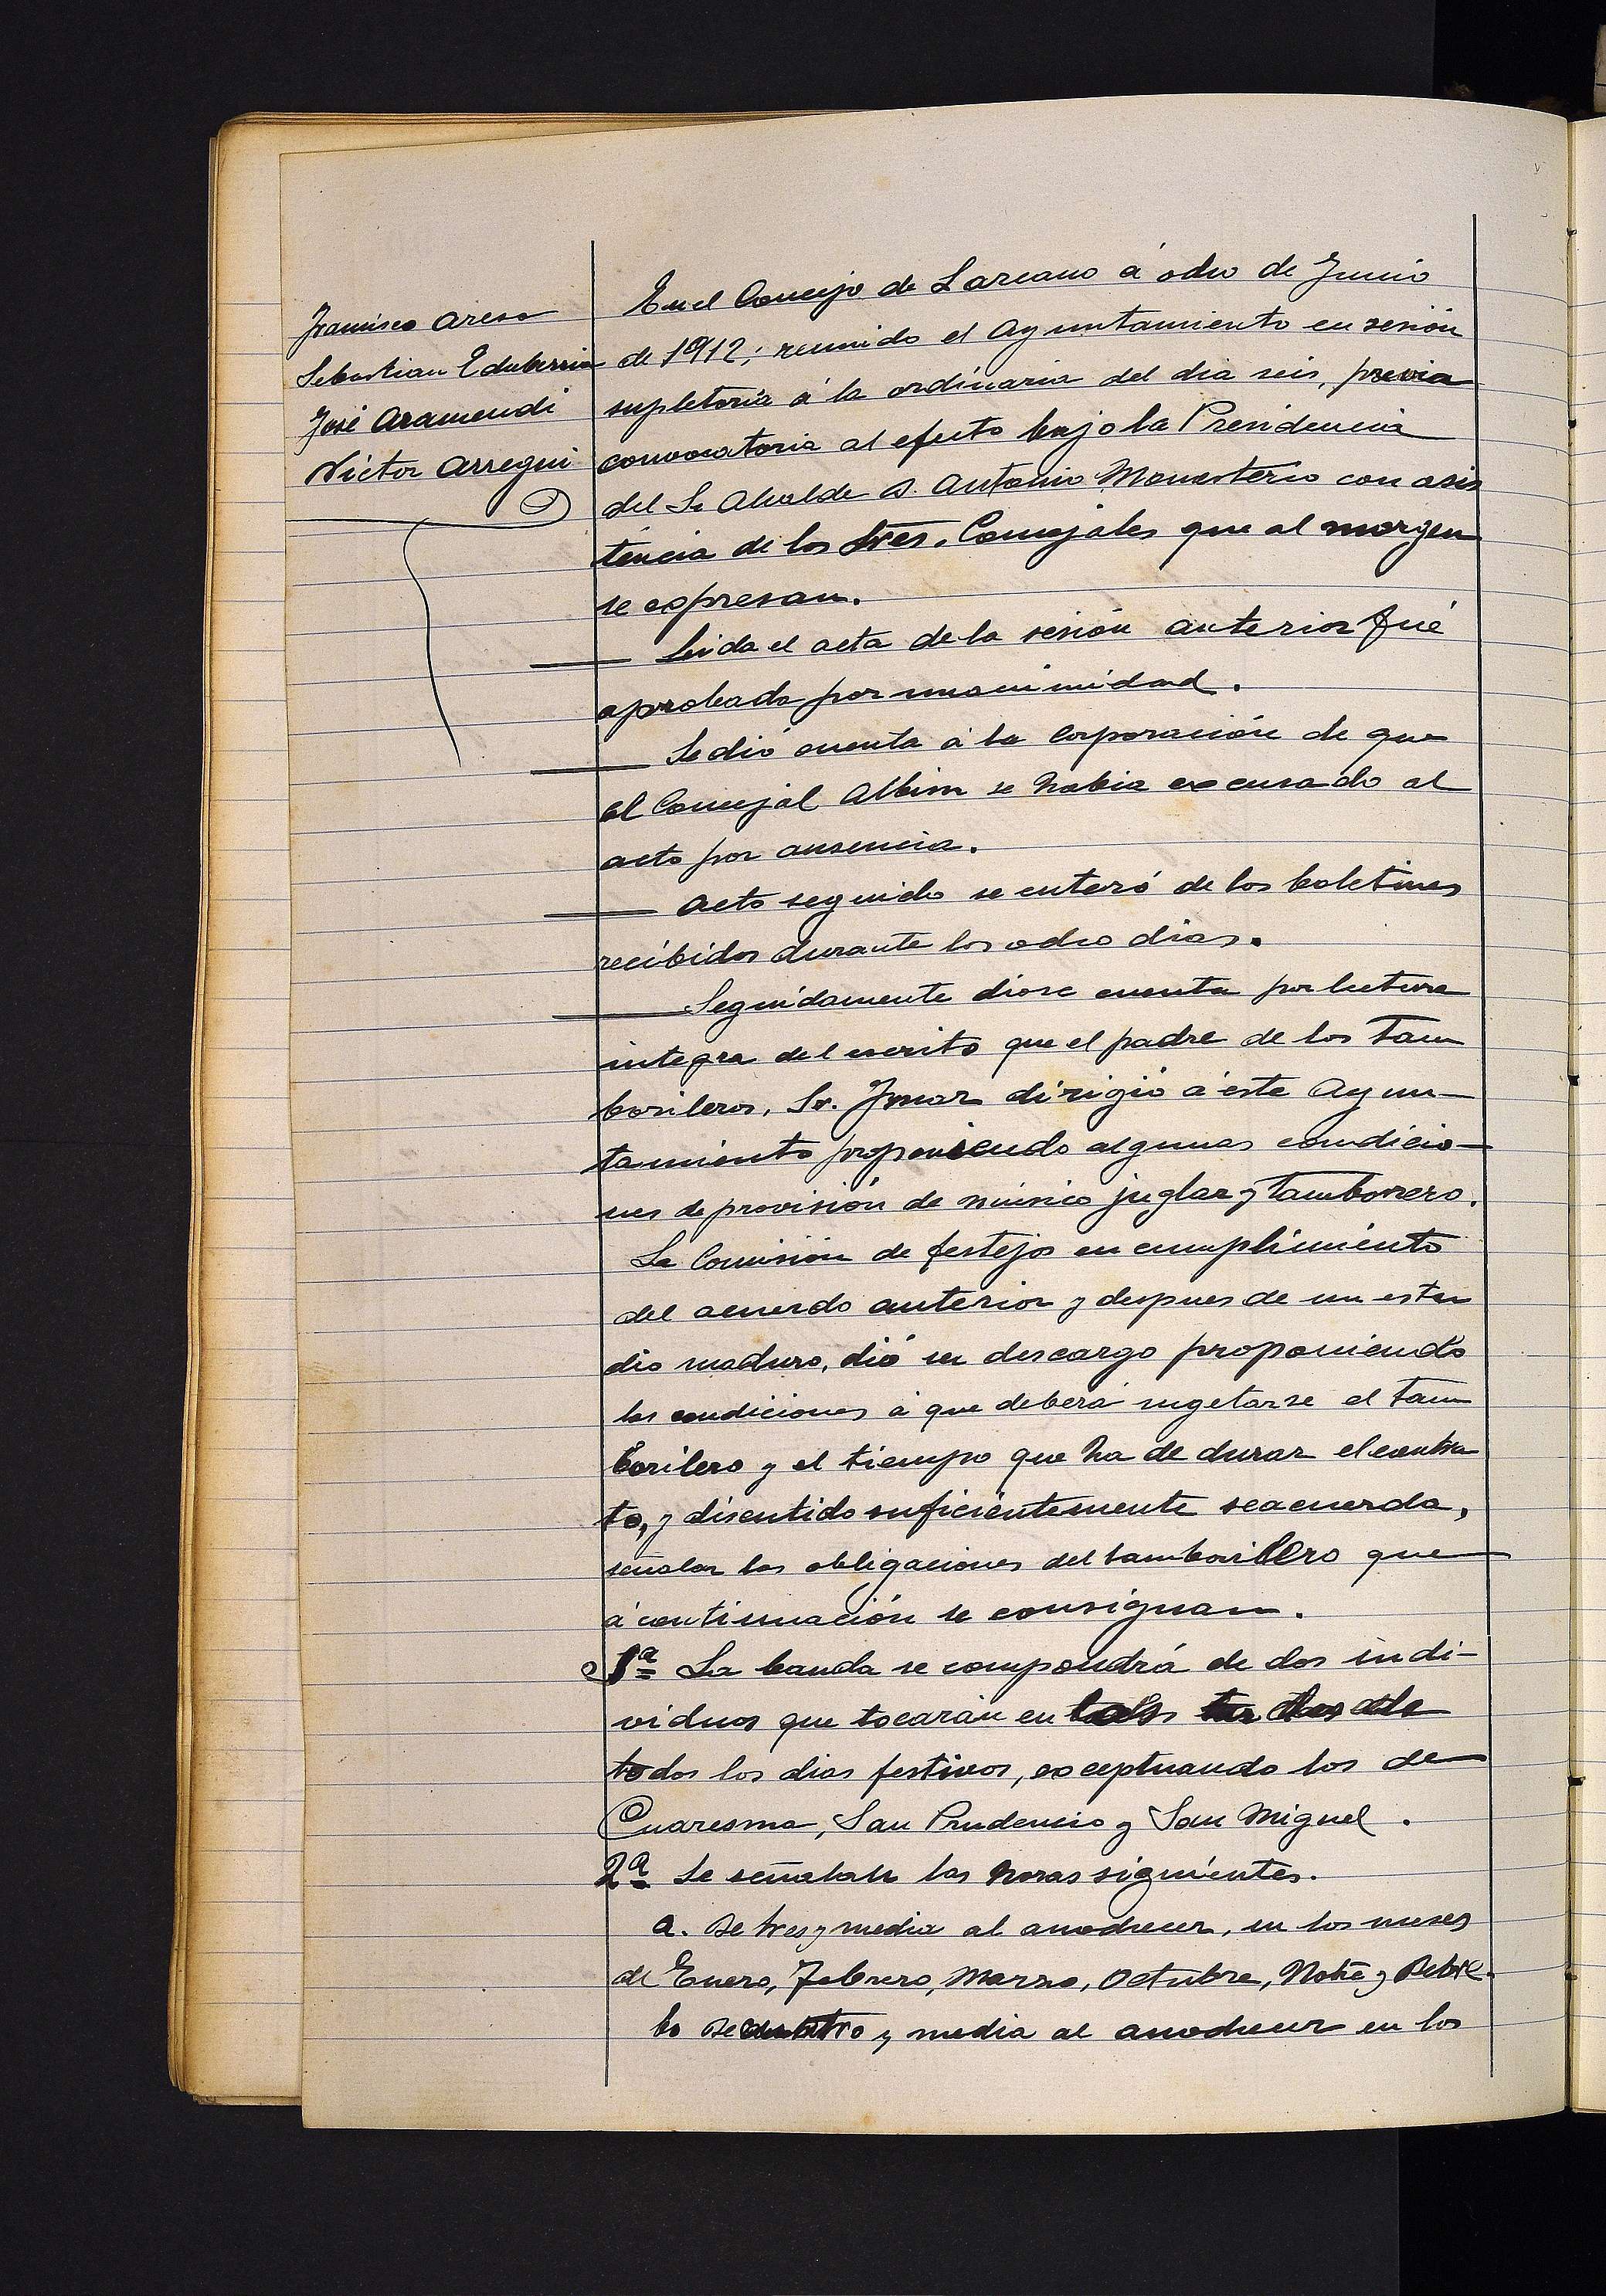 Francisco Areso
Sebastian Echeberria
José Aramendi
Victor Arregui
En el Concejo de Lazcano á ocho de Junio
de 1912; reunido el Ayuntamiento en sesión
supletoria á la ordinaria del dia seis, previa
convocatoria al efecto bajo la Presidencia
del Sr Alcalde D. Antonio Monasterio con asis
tencia de los Sres. Concejales que al margen
se expresan.
Leida el acta de la sesión anterior fué
aprobada por unanimidad.
Se dió cuenta á la Corporación de que
el Concejal Albisu se habia excusado al
acto por ausencia.
Acto seguido se enteró de los boletines
recibidos durante los ocho dias.
Seguidamente diose cuenta por lectura
integra del escrito que el padre de los tam
borileros, Sr. Imaz dirigió á este Ayun-
tamiento proponiendo algunas condicio-
nes de provisión de músico juglar y tamborrero.
La Comisión de festejos en cumplimiento
del acuerdo anterior y despues de un estu
dio maduro, dió su descargo proponiendo
las condiciones á que deberá sugetarse el tam
borilero y el tiempo que ha de durar el contra
to, y discutido suficientemente se acuerda,
señalar las obligaciones del tamborilero que
á continuación se consignan.
1ª La banda se compondrá de dos indi-
viduos que tocarán en
todos los dias festivos, exceptuando los de
Cuaresma, San Prudencio y San Miguel.
2ª Se señalan las horas siguientes.
a. De tres y media al anochecer, en los meses
de Enero, Febrero, Marzo, Octubre, Nobre y Debre.
b. De cuatro y media al anochecer en los